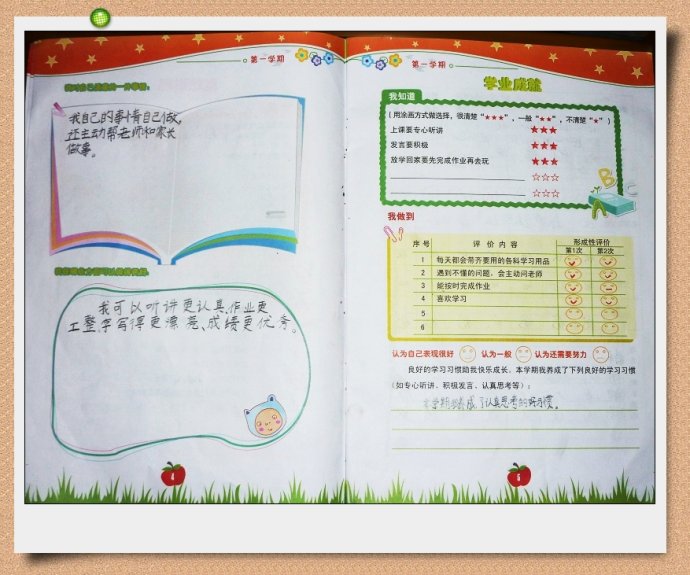 第一学期
我自己的事情自己做,
还主动帮老师和家长
做事。
我可以听讲更认真,作业更
工整,字写得更漂亮,成绩更优秀。
第一学期
学业成就
我知道
(用涂画方式做选择,很清楚“★★★”,一般“★★”,不清楚“★”)
上课要专心听讲 ★★★
发言要积极 ★★★
放学回家要先完成作业再去玩 ★★★
☆☆☆
☆☆☆
我做到
序号 评价内容 形成性评价
第1次 第2次
1 每天都会带齐要用的各科学习用品
2 遇到不懂的问题,会主动问老师
3 能按时完成作业
4 喜欢学习
5
6
认为自己表现很好 认为一般 认为还需要努力
良好的学习习惯助我快乐成长。本学期我养成了下列良好的学习习惯
(如专心听讲、积极发言、认真思考等):
本学期我养成了认真思考的好习惯。